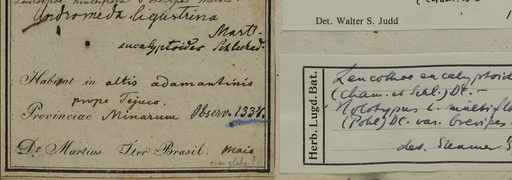 Andromeda ligustrina
Mart.
eucalyptoides Schlechd.
Habitat in altis adamantinis
prope Tejuco.
Provinciae Minarum Observ. 1337.
Dr. Martius Iter Brasil. Maio
Det. Walter S. Judd
Herb. Lugd. Bat.
Leucothoe eucalyptoid
(Cham. et Schl.) DC. -
Holotypus L. multiflo
(Pohl) DC. var. brevipes
des. Sleumer